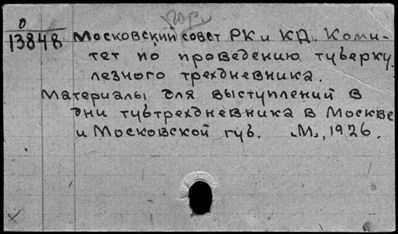 0
13848 Московский совет РК и КД. Коми-
тет по проведению туберку
лезного трехдневника.
Материалы для выступлений в
дни тубтрехдневника в Москве
и Московской губ. М., 1926.